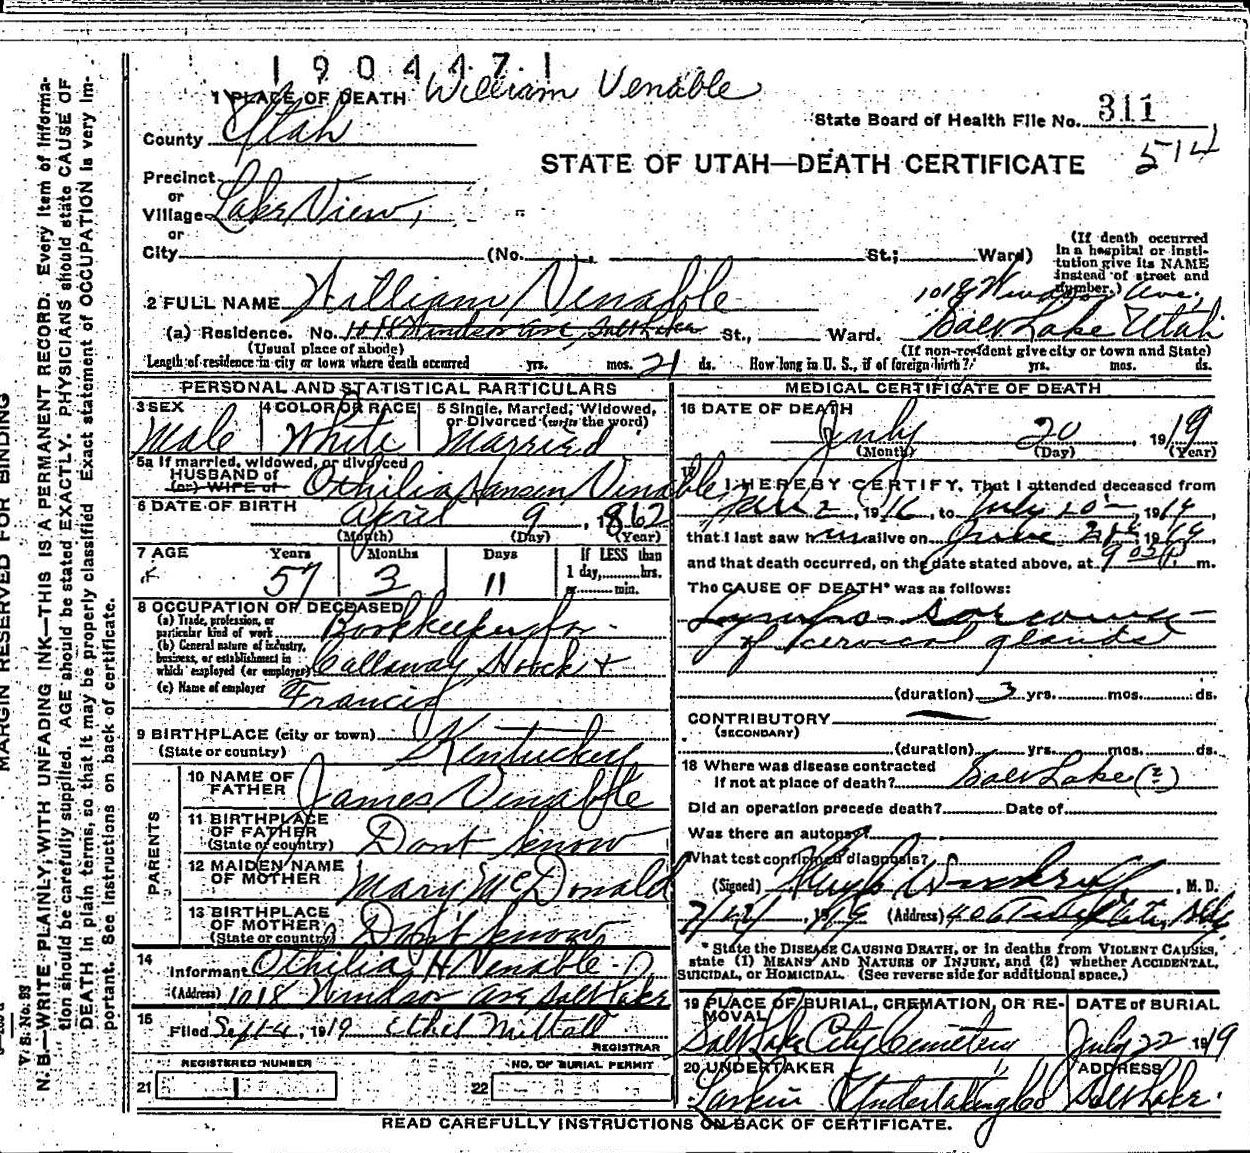 1904471
William Venable
1 PLACE OF DEATH
County Utah
State Board of Health File No. 311
514
STATE OF UTAH—DEATH CERTIFICATE
Precinct
or
Village Lake View,
or
City (No. St.; Ward)
(If death occurred in a hospital or institution give its NAME instead of street and number.)
2 FULL NAME William Venable
1018 Windsor Ave,
Salt Lake Utah
(a) Residence. No. 1018 Windsor Ave, Salt Lake St., Ward.
(Usual place of abode)
(If non-resident give city or town and State)
Length of residence in city or town where death occurred yrs. mos. 21 ds. How long in U. S., if of foreign birth? yrs. mos. ds.
PERSONAL AND STATISTICAL PARTICULARS
3 SEX
Male
4 COLOR OR RACE
White
5 Single, Married, Widowed, or Divorced (write the word)
Married
5a If married, widowed, or divorced
HUSBAND of
(or) WIFE of
Othilia Hansen Venable
6 DATE OF BIRTH
April 9, 1862
(Month) (Day) (Year)
7 AGE
Years Months Days
57 3 11
If LESS than
1 day, hrs.
or min.
8 OCCUPATION OF DECEASED
(a) Trade, profession, or particular kind of work Bookkeeper for
(b) General nature of industry, business, or establishment in which employed (or employer) Callaway Hoock +
(c) Name of employer Francis
9 BIRTHPLACE (city or town)
(State or country) Kentucky
PARENTS
10 NAME OF FATHER James Venable
11 BIRTHPLACE OF FATHER
(State or country) Dont know
12 MAIDEN NAME OF MOTHER Mary McDonald
13 BIRTHPLACE OF MOTHER
(State or country) Don't know
14
Informant Othilia H Venable
(Address) 1018 Windsor Ave Salt Lake
15
Filed 1919 Ethel
REGISTRAR
REGISTERED NUMBER
21
NO. OF BURIAL PERMIT
22
MEDICAL CERTIFICATE OF DEATH
16 DATE OF DEATH
July 20, 1919
(Month) (Day) (Year)
17
I HEREBY CERTIFY, That I attended deceased from
2, 1916, to July 20 1919,
that I last saw him alive on June 1919
and that death occurred, on the date stated above, at m.
The CAUSE OF DEATH* was as follows:
Lympho-sarcoma
of cervical glands
(duration) 3 yrs. mos. ds.
CONTRIBUTORY
(SECONDARY)
(duration) yrs. mos. ds.
18 Where was disease contracted
if not at place of death? Salt Lake (?)
Did an operation precede death? Date of
Was there an autopsy?
What test confirmed diagnosis?
(Signed) M. D.
1919 (Address) 406
* State the DISEASE CAUSING DEATH, or in deaths from VIOLENT CAUSES,
state (1) MEANS AND NATURE OF INJURY, and (2) whether ACCIDENTAL,
SUICIDAL, or HOMICIDAL. (See reverse side for additional space.)
19 PLACE OF BURIAL, CREMATION, OR REMOVAL
Salt Lake City Cemetery
DATE OF BURIAL
July 22 1919
20 UNDERTAKER
Larkin Undertaking Co
ADDRESS
Salt Lake.
READ CAREFULLY INSTRUCTIONS ON BACK OF CERTIFICATE.
MARGIN RESERVED FOR BINDING
V. S. No. 93
N. B.—WRITE PLAINLY, WITH UNFADING INK—THIS IS A PERMANENT RECORD. Every item of information should be carefully supplied. AGE should be stated EXACTLY. PHYSICIANS should state CAUSE OF DEATH in plain terms, so that it may be properly classified. Exact statement of OCCUPATION is very important. See instructions on back of certificate.